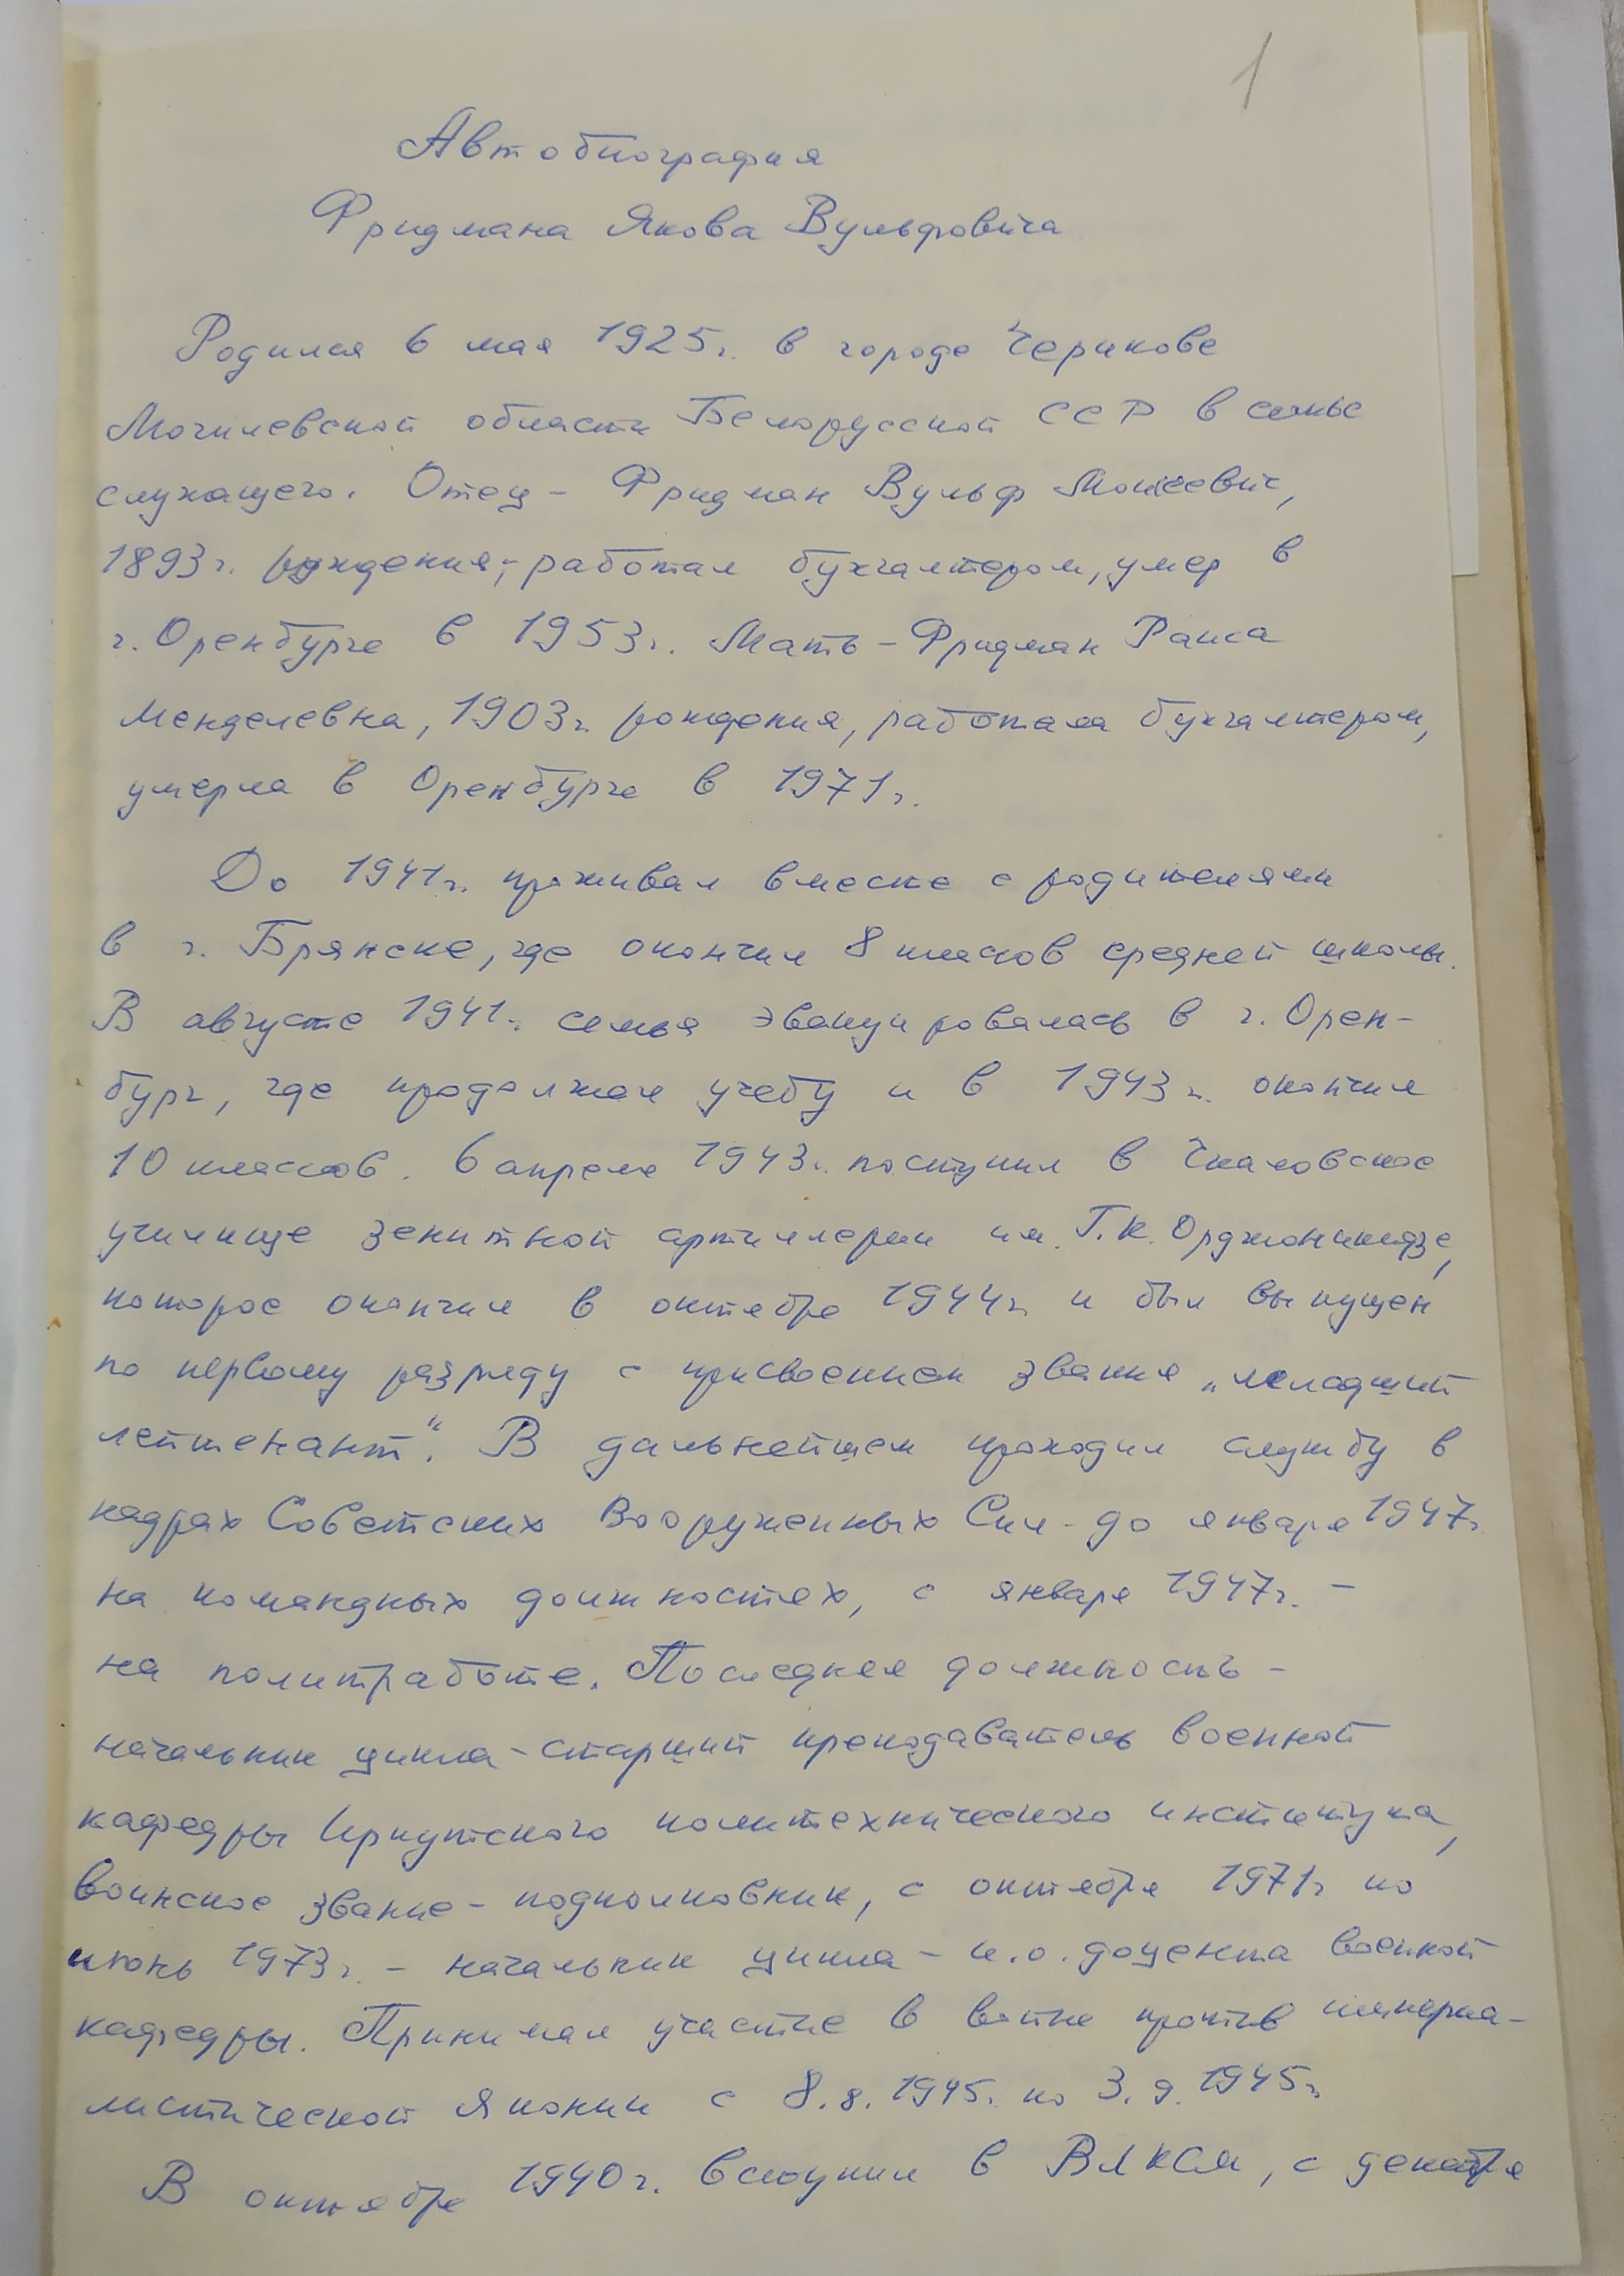 1
Автобиография
Фридмана Якова Вульфовича
Родился 6 мая 1925г. в городе Черикове
Могилевской области Белорусской ССР в семье
служащего. Отец - Фридман Вульф Моисеевич,
1893г. рождения, работал бухгалтером, умер в
г. Оренбурге в 1953г. Мать - Фридман Раиса
Менделевна, 1903г. рождения, работала бухгалтером,
умерла в Оренбурге в 1971г.
До 1941г. проживал вместе с родителями
в г. Брянске, где окончил 8 классов средней школы.
В августе 1941г. семья эвакуировалась в г. Орен-
бург, где продолжал учебу и в 1943г. окончил
10 классов. 6 апреля 1943г. поступил в Чкаловское
училище зенитной артиллерии им. Г.К. Орджоникидзе,
которое окончил в октябре 1944г. и был выпущен
по первому разряду с присвоением звания „младший
лейтенант“. В дальнейшем проходил службу в
кадрах Советских Вооруженных Сил - до января 1947г.
на командных должностях, с января 1947г. -
на политработе. Последняя должность -
начальник цикла - старший преподаватель военной
кафедры Иркутского политехнического института,
воинское звание - подполковник, с октября 1971г. по
июнь 1973г. - начальник цикла - и.о. доцента военной
кафедры. Принимал участие в войне против империа-
листической Японии с 8.8.1945г. по 3.9.1945г.
В октябре 1940г. вступил в ВЛКСМ, с декабря